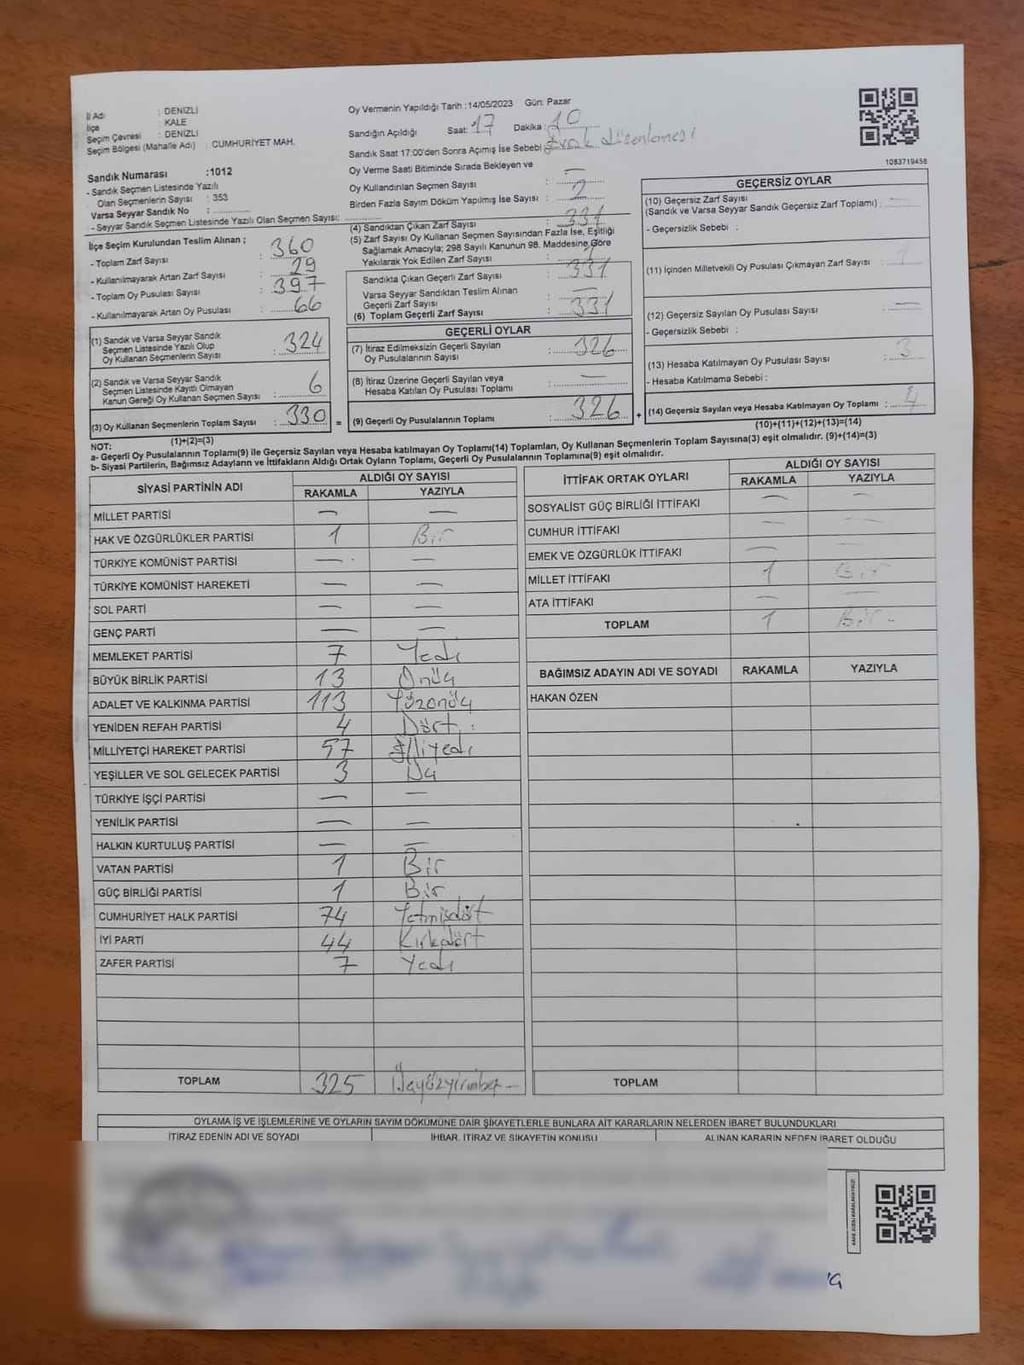 İl Adı : DENİZLİ
İlçe : KALE
Seçim Çevresi : DENİZLİ
Seçim Bölgesi (Mahalle Adı) : CUMHURİYET MAH.
Sandık Numarası :1012
- Sandık Seçmen Listesinde Yazılı
Olan Seçmenlerin Sayısı : 353
Varsa Seyyar Sandık No :
- Seyyar Sandık Seçmen Listesinde Yazılı Olan Seçmen Sayısı:
İlçe Seçim Kurulundan Teslim Alınan ;
- Toplam Zarf Sayısı : 360
- Kullanılmayarak Artan Zarf Sayısı : 29
- Toplam Oy Pusulası Sayısı : 397
- Kullanılmayarak Artan Oy Pusulası : 66
(1) Sandık ve Varsa Seyyar Sandık
Seçmen Listesinde Yazılı Olup
Oy Kullanan Seçmenlerin Sayısı : 324
(2) Sandık ve Varsa Seyyar Sandık
Seçmen Listesinde Kayıtlı Olmayan
Kanun Gereği Oy Kullanan Seçmen Sayısı : 6
(3) Oy Kullanan Seçmenlerin Toplam Sayısı : 330
(1)+(2)=(3)
Oy Vermenin Yapıldığı Tarih :14/05/2023 Gün: Pazar
Sandığın Açıldığı Saat: 17 Dakika : 10
Sandık Saat 17:00'den Sonra Açımış İse Sebebi : Evrak düzenlemesi
Oy Verme Saati Bitiminde Sırada Bekleyen ve
Oy Kullandırılan Seçmen Sayısı : —
Birden Fazla Sayım Döküm Yapılmış İse Sayısı : 2
(4) Sandıktan Çıkan Zarf Sayısı : 331
(5) Zarf Sayısı Oy Kullanan Seçmen Sayısından Fazla İse, Eşitliği
Sağlamak Amacıyla; 298 Sayılı Kanunun 98. Maddesine Göre
Yakılarak Yok Edilen Zarf Sayısı :
Sandıkta Çıkan Geçerli Zarf Sayısı : 331
Varsa Seyyar Sandıktan Teslim Alınan
Geçerli Zarf Sayısı : —
(6) Toplam Geçerli Zarf Sayısı : 331
GEÇERLİ OYLAR
(7) İtiraz Edilmeksizin Geçerli Sayılan
Oy Pusulalarının Sayısı : 326
(8) İtiraz Üzerine Geçerli Sayılan veya
Hesaba Katılan Oy Pusulası Toplamı : —
(9) Geçerli Oy Pusulalarının Toplamı : 326
1083719458
GEÇERSİZ OYLAR
(10) Geçersiz Zarf Sayısı
(Sandık ve Varsa Seyyar Sandık Geçersiz Zarf Toplamı) : —
- Geçersizlik Sebebi :
(11) İçinden Milletvekili Oy Pusulası Çıkmayan Zarf Sayısı : 1
(12) Geçersiz Sayılan Oy Pusulası Sayısı : —
- Geçersizlik Sebebi :
(13) Hesaba Katılmayan Oy Pusulası Sayısı : 3
- Hesaba Katılmama Sebebi :
(14) Geçersiz Sayılan veya Hesaba Katılmayan Oy Toplamı : 4
(10)+(11)+(12)+(13)=(14)
NOT:
a- Geçerli Oy Pusulalarının Toplamı(9) ile Geçersiz Sayılan veya Hesaba katılmayan Oy Toplamı(14) Toplamları, Oy Kullanan Seçmenlerin Toplam Sayısına(3) eşit olmalıdır. (9)+(14)=(3)
b- Siyasi Partilerin, Bağımsız Adayların ve İttifakların Aldığı Ortak Oyların Toplamı, Geçerli Oy Pusulalarının Toplamına(9) eşit olmalıdır.
SİYASİ PARTİNİN ADI ALDIĞI OY SAYISI
RAKAMLA YAZIYLA
MİLLET PARTİSİ — —
HAK VE ÖZGÜRLÜKLER PARTİSİ 1 Bir
TÜRKİYE KOMÜNİST PARTİSİ — —
TÜRKİYE KOMÜNİST HAREKETİ — —
SOL PARTİ — —
GENÇ PARTİ — —
MEMLEKET PARTİSİ 7 Yedi
BÜYÜK BİRLİK PARTİSİ 13 Onüç
ADALET VE KALKINMA PARTİSİ 113 Yüzonüç
YENİDEN REFAH PARTİSİ 4 Dört
MİLLİYETÇİ HAREKET PARTİSİ 57 Elliyedi
YEŞİLLER VE SOL GELECEK PARTİSİ 3 Üç
TÜRKİYE İŞÇİ PARTİSİ — —
YENİLİK PARTİSİ — —
HALKIN KURTULUŞ PARTİSİ — —
VATAN PARTİSİ 1 Bir
GÜÇ BİRLİĞİ PARTİSİ 1 Bir
CUMHURİYET HALK PARTİSİ 74 Yetmişdört
İYİ PARTİ 44 Kırkdört
ZAFER PARTİSİ 7 Yedi
TOPLAM 325 Üçyüzyirmibeş
İTTİFAK ORTAK OYLARI ALDIĞI OY SAYISI
RAKAMLA YAZIYLA
SOSYALİST GÜÇ BİRLİĞİ İTTİFAKI — —
CUMHUR İTTİFAKI — —
EMEK VE ÖZGÜRLÜK İTTİFAKI — —
MİLLET İTTİFAKI 1 Bir
ATA İTTİFAKI — —
TOPLAM 1 Bir
BAĞIMSIZ ADAYIN ADI VE SOYADI RAKAMLA YAZIYLA
HAKAN ÖZEN
TOPLAM
OYLAMA İŞ VE İŞLEMLERİNE VE OYLARIN SAYIM DÖKÜMÜNE DAİR ŞİKAYETLERLE BUNLARA AİT KARARLARIN NELERDEN İBARET BULUNDUKLARI
İTİRAZ EDENİN ADI VE SOYADI İHBAR, İTİRAZ VE ŞİKAYETİN KONUSU ALINAN KARARIN NEDEN İBARET OLDUĞU